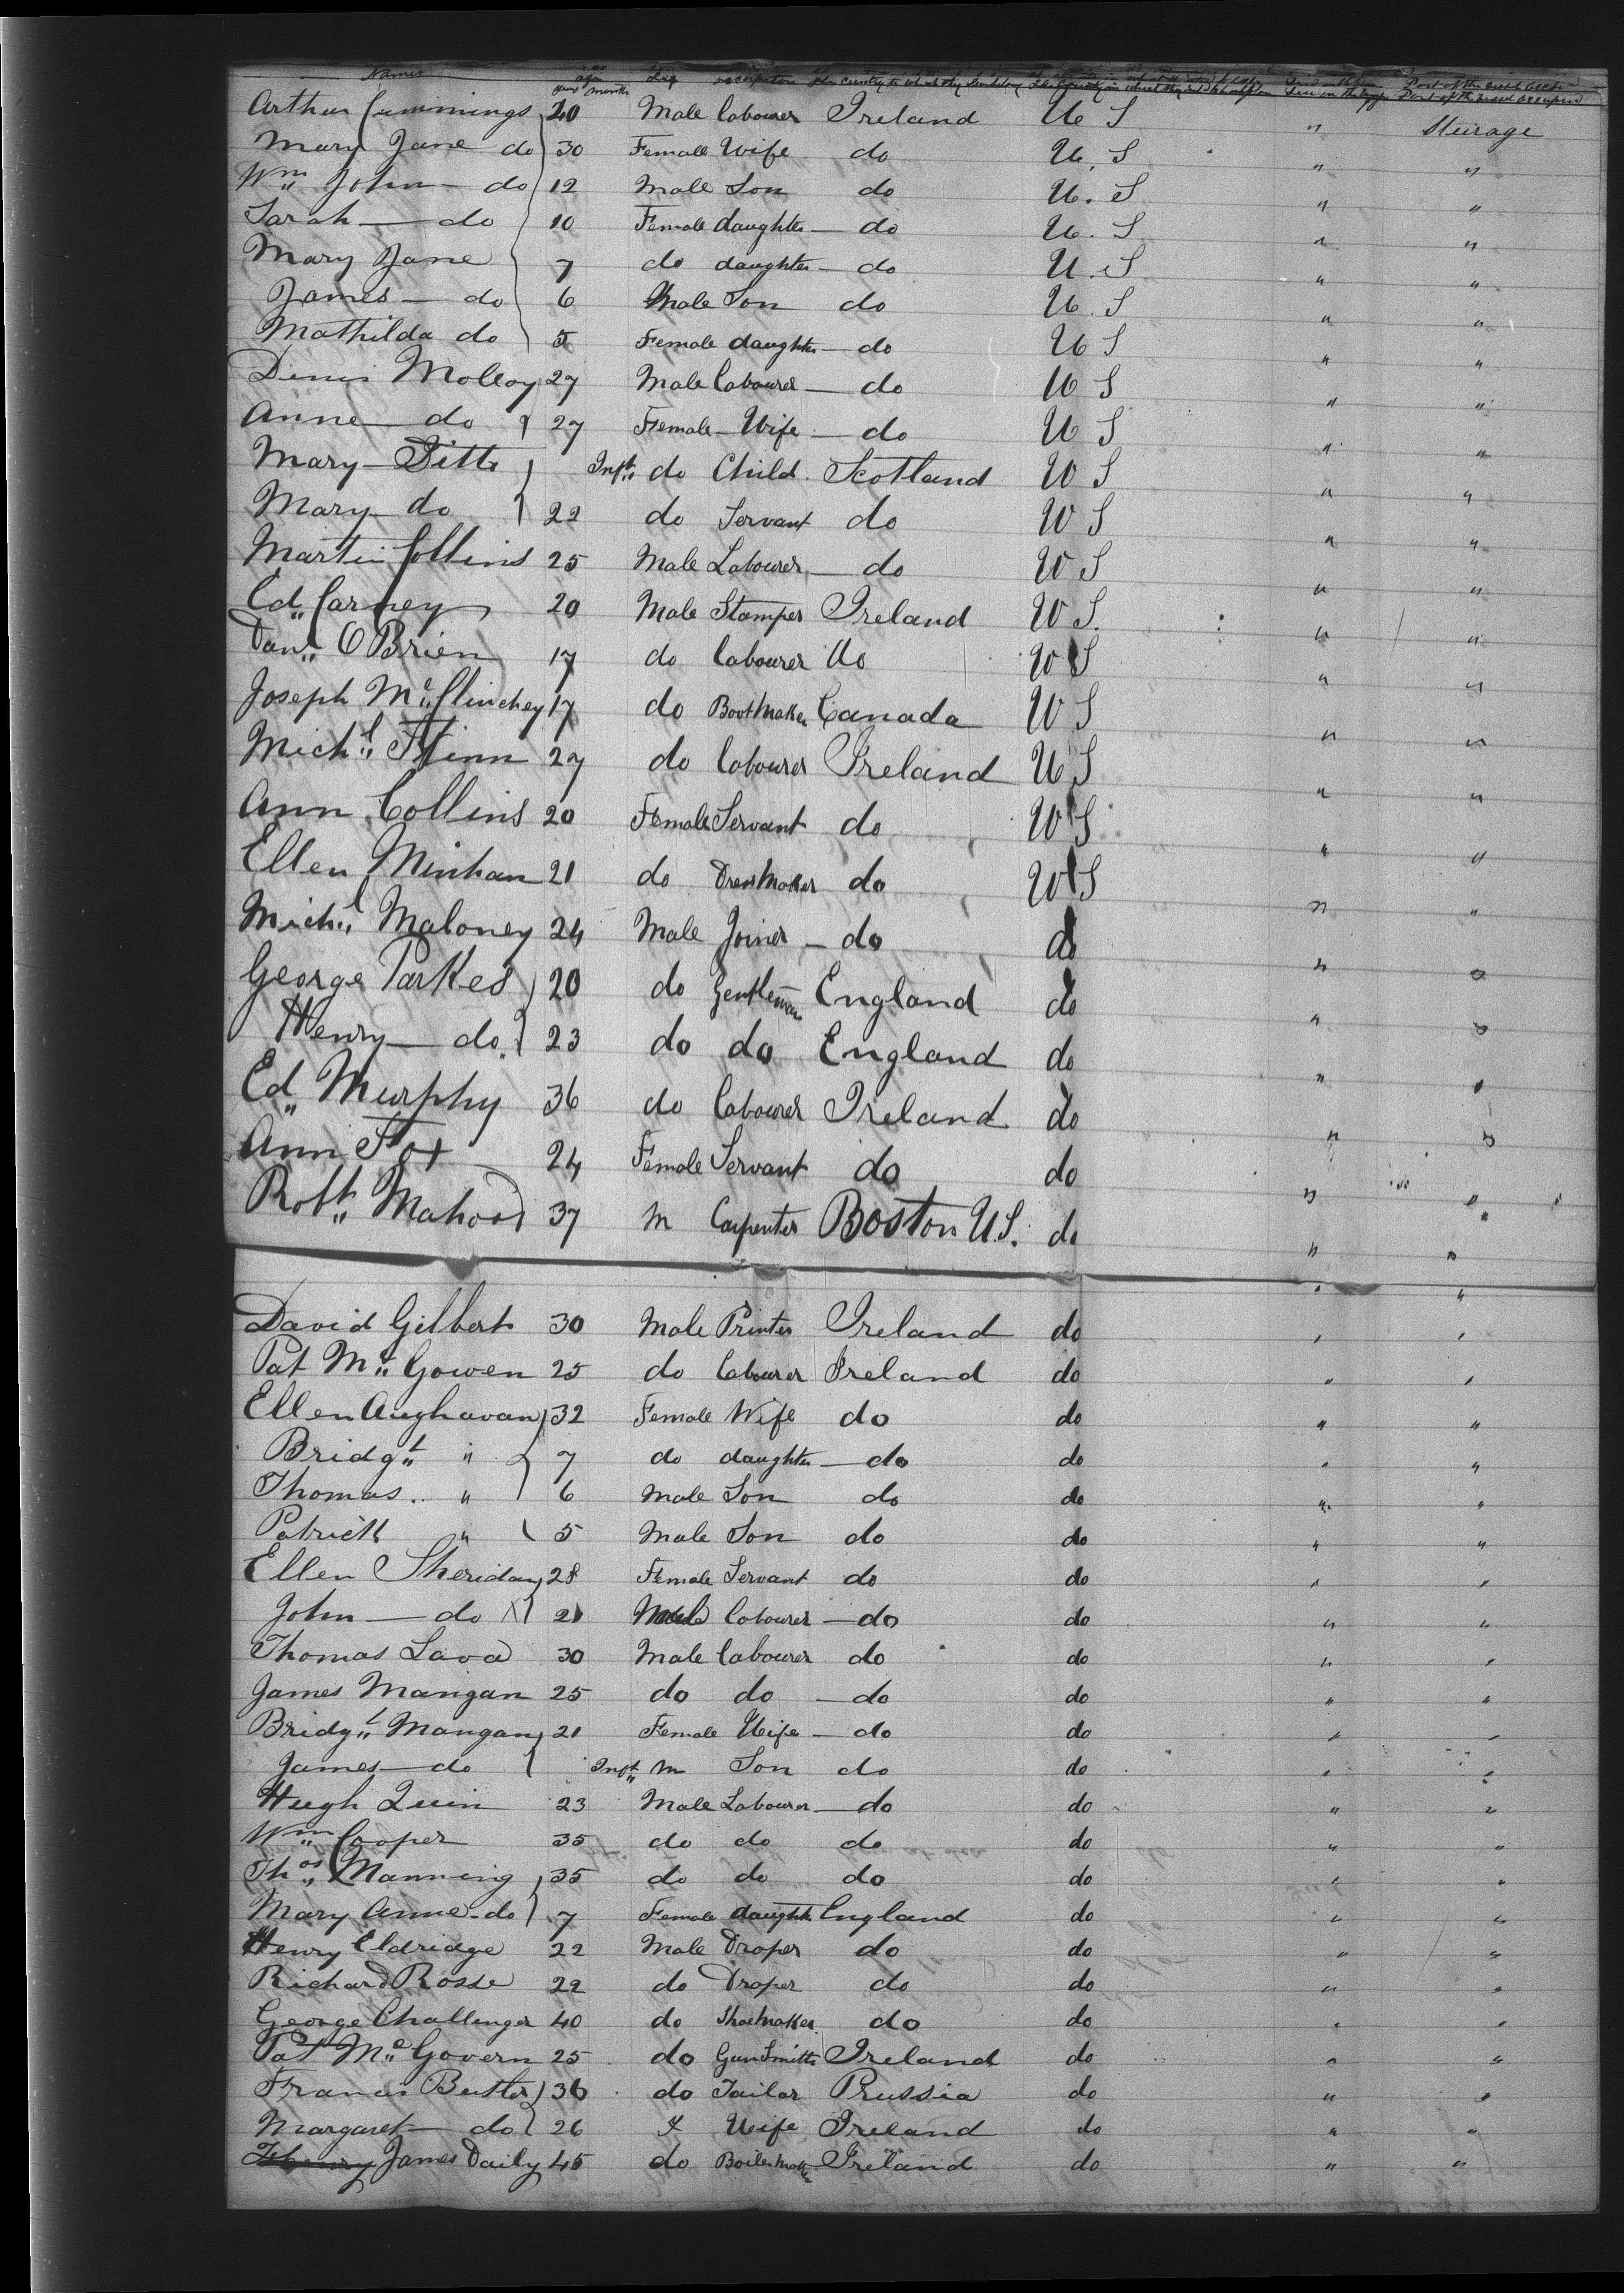 Names age years months Sex occupation the Country to which they severally
Arthur Cummings 40 Male labourer Ireland U S " Steirage
Mary Jane do 30 Female Wife do U. S " "
Wm John do 12 Male Son do U. S " "
Sarah do 10 Female daughter do U. S " "
Mary Jane 7 do daughter do U. S " "
James do 6 Male Son do U. S " "
Mathilda do 5 Female daughter do U S " "
Denis Molloy 27 Male labourer do U S " "
Anne do 27 Female Wife do U S " "
Mary Inft do Child Scotland U S " "
Mary do 22 do Servant do U S " "
Martin Collins 25 Male Labourer do U S " "
Ed Carney 20 Male Stamper Ireland U S. " "
Danl O Brien 17 do labourer do U S " "
Joseph Mc Clinchey 17 do Boot Maker Canada U S " "
Michl Flinn 27 do labourer Ireland U S " "
Ann Collins 20 Female Servant do U S " "
Ellen Minhan 21 do DressMaker do U S " "
Michl Maloney 24 Male Joiner do do " "
George Parkes 20 do Gentleman England do " "
Henry do 23 do do England do " "
Ed Murphy 36 do labourer Ireland do " "
Ann Fox 24 Female Servant do do " "
Robt Mahood 37 M Carpenter Boston U.S. do " "
David Gilbert 30 Male Printer Ireland do " "
Pat Mc Gowen 25 do labourer Ireland do " "
Ellen Aughavan 32 Female Wife do do " "
Bridgt " 7 do daughter do do " "
Thomas " 6 Male Son do do " "
Patrick " 5 Male Son do do " "
Ellen Sheridan 28 Female Servant do do " "
John do 21 Male labourer do do " "
Thomas Lava 30 Male labourer do do " "
James Mangan 25 do do do do " "
Bridgt Mangan 21 Female Wife do do " "
James do Inft M Son do do " "
Hugh Quin 23 Male Labourer do do " "
Wm Cooper 35 do do do do " "
Thos Manning 35 do do do do " "
Mary Anne do 7 Female daughter England do " "
Henry Eldridge 22 Male Draper do do " "
Richard Rosse 22 do Draper do do " "
George Challenger 40 do Shoemaker do do " "
Pat Mc Govern 25 do GunSmith Ireland do " "
Francis Butler 36 do Tailor Prussia do " "
Margaret do 26 F Wife Ireland do " "
James Daily 45 do Boilermaker Ireland do " "